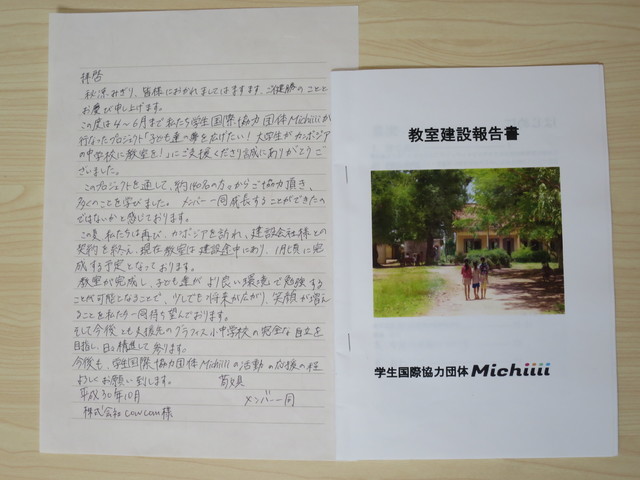 拝啓
秋涼みぎり、皆様におかれましてはますます、ご健勝のことと
お慶び申し上げます。
この度は4~6月まで私たち学生国際協力団体Michiiiiが
行なったプロジェクト「子ども達の夢を広げたい!大学生がカンボジア
の中学校に教室を!」にご支援くださり誠にありがとうご
ざいました。
このプロジェクトを通して、約140名の方々からご協力頂き、
多くのことを学びました。メンバー一同成長することができたの
ではないかと感じております。
この夏、私たちは再び、カンボジアを訪れ、建設会社様との
契約を終え、現在教室は建設途中にあり、1月頃に完
成する予定となっております。
教室が完成し、子ども達がより良い環境で勉強する
ことが可能となることで、少しでも将来が広がり、笑顔が増え
ることを私たち一同待ち望んでおります。
そして今後とも支援先のプラフィス小中学校の完全な自立を
目指し、日々精進して参ります。
今後も、学生国際協力団体Michiiiiの活動の応援の程
よろしくお願い致します。 敬具
平成30年10月 メンバー一同
株式会社cowcow様
教室建設報告書
学生国際協力団体 Michiiii